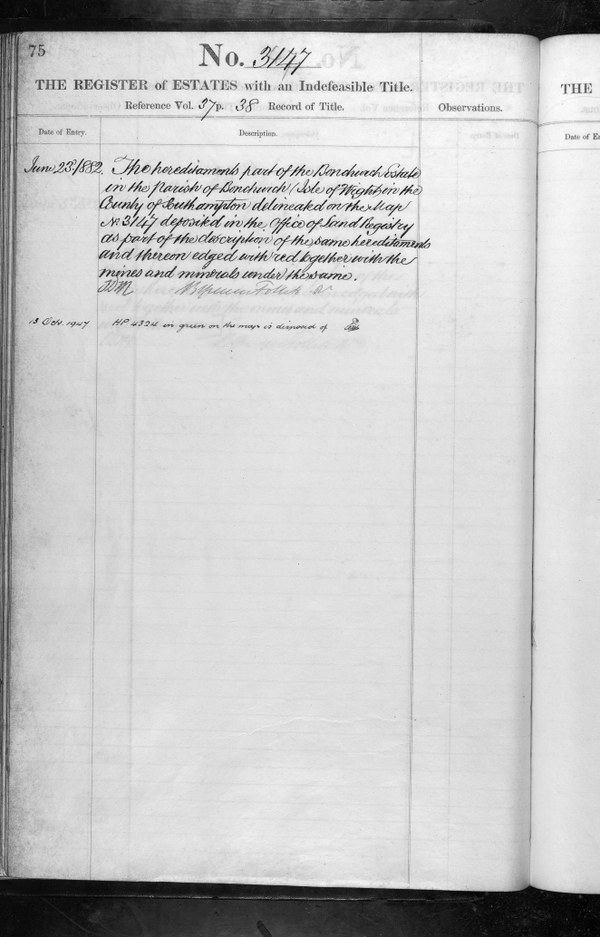 75
No. 3147
THE REGISTER of ESTATES with an Indefeasible Title.
Reference Vol. 37 p. 38 Record of Title.
Observations.
Date of Entry.
Description.
June 23. 1882.
The hereditaments part of the Bonchurch Estate
in the Parish of Bonchurch (Isle of Wight) in the
County of Southampton delineated on the Map
No 3147 deposited in the Office of Land Registry
as part of the description of the same hereditaments
and thereon edged with red together with the
mines and minerals under the same.
13 Oct. 1947
HP 4324 in green on the map is disposed of
THE
Date of E